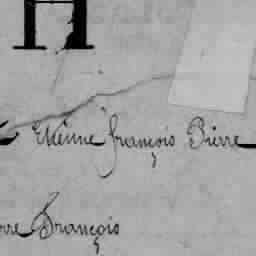 H
Etienne françois Pierre
rre François